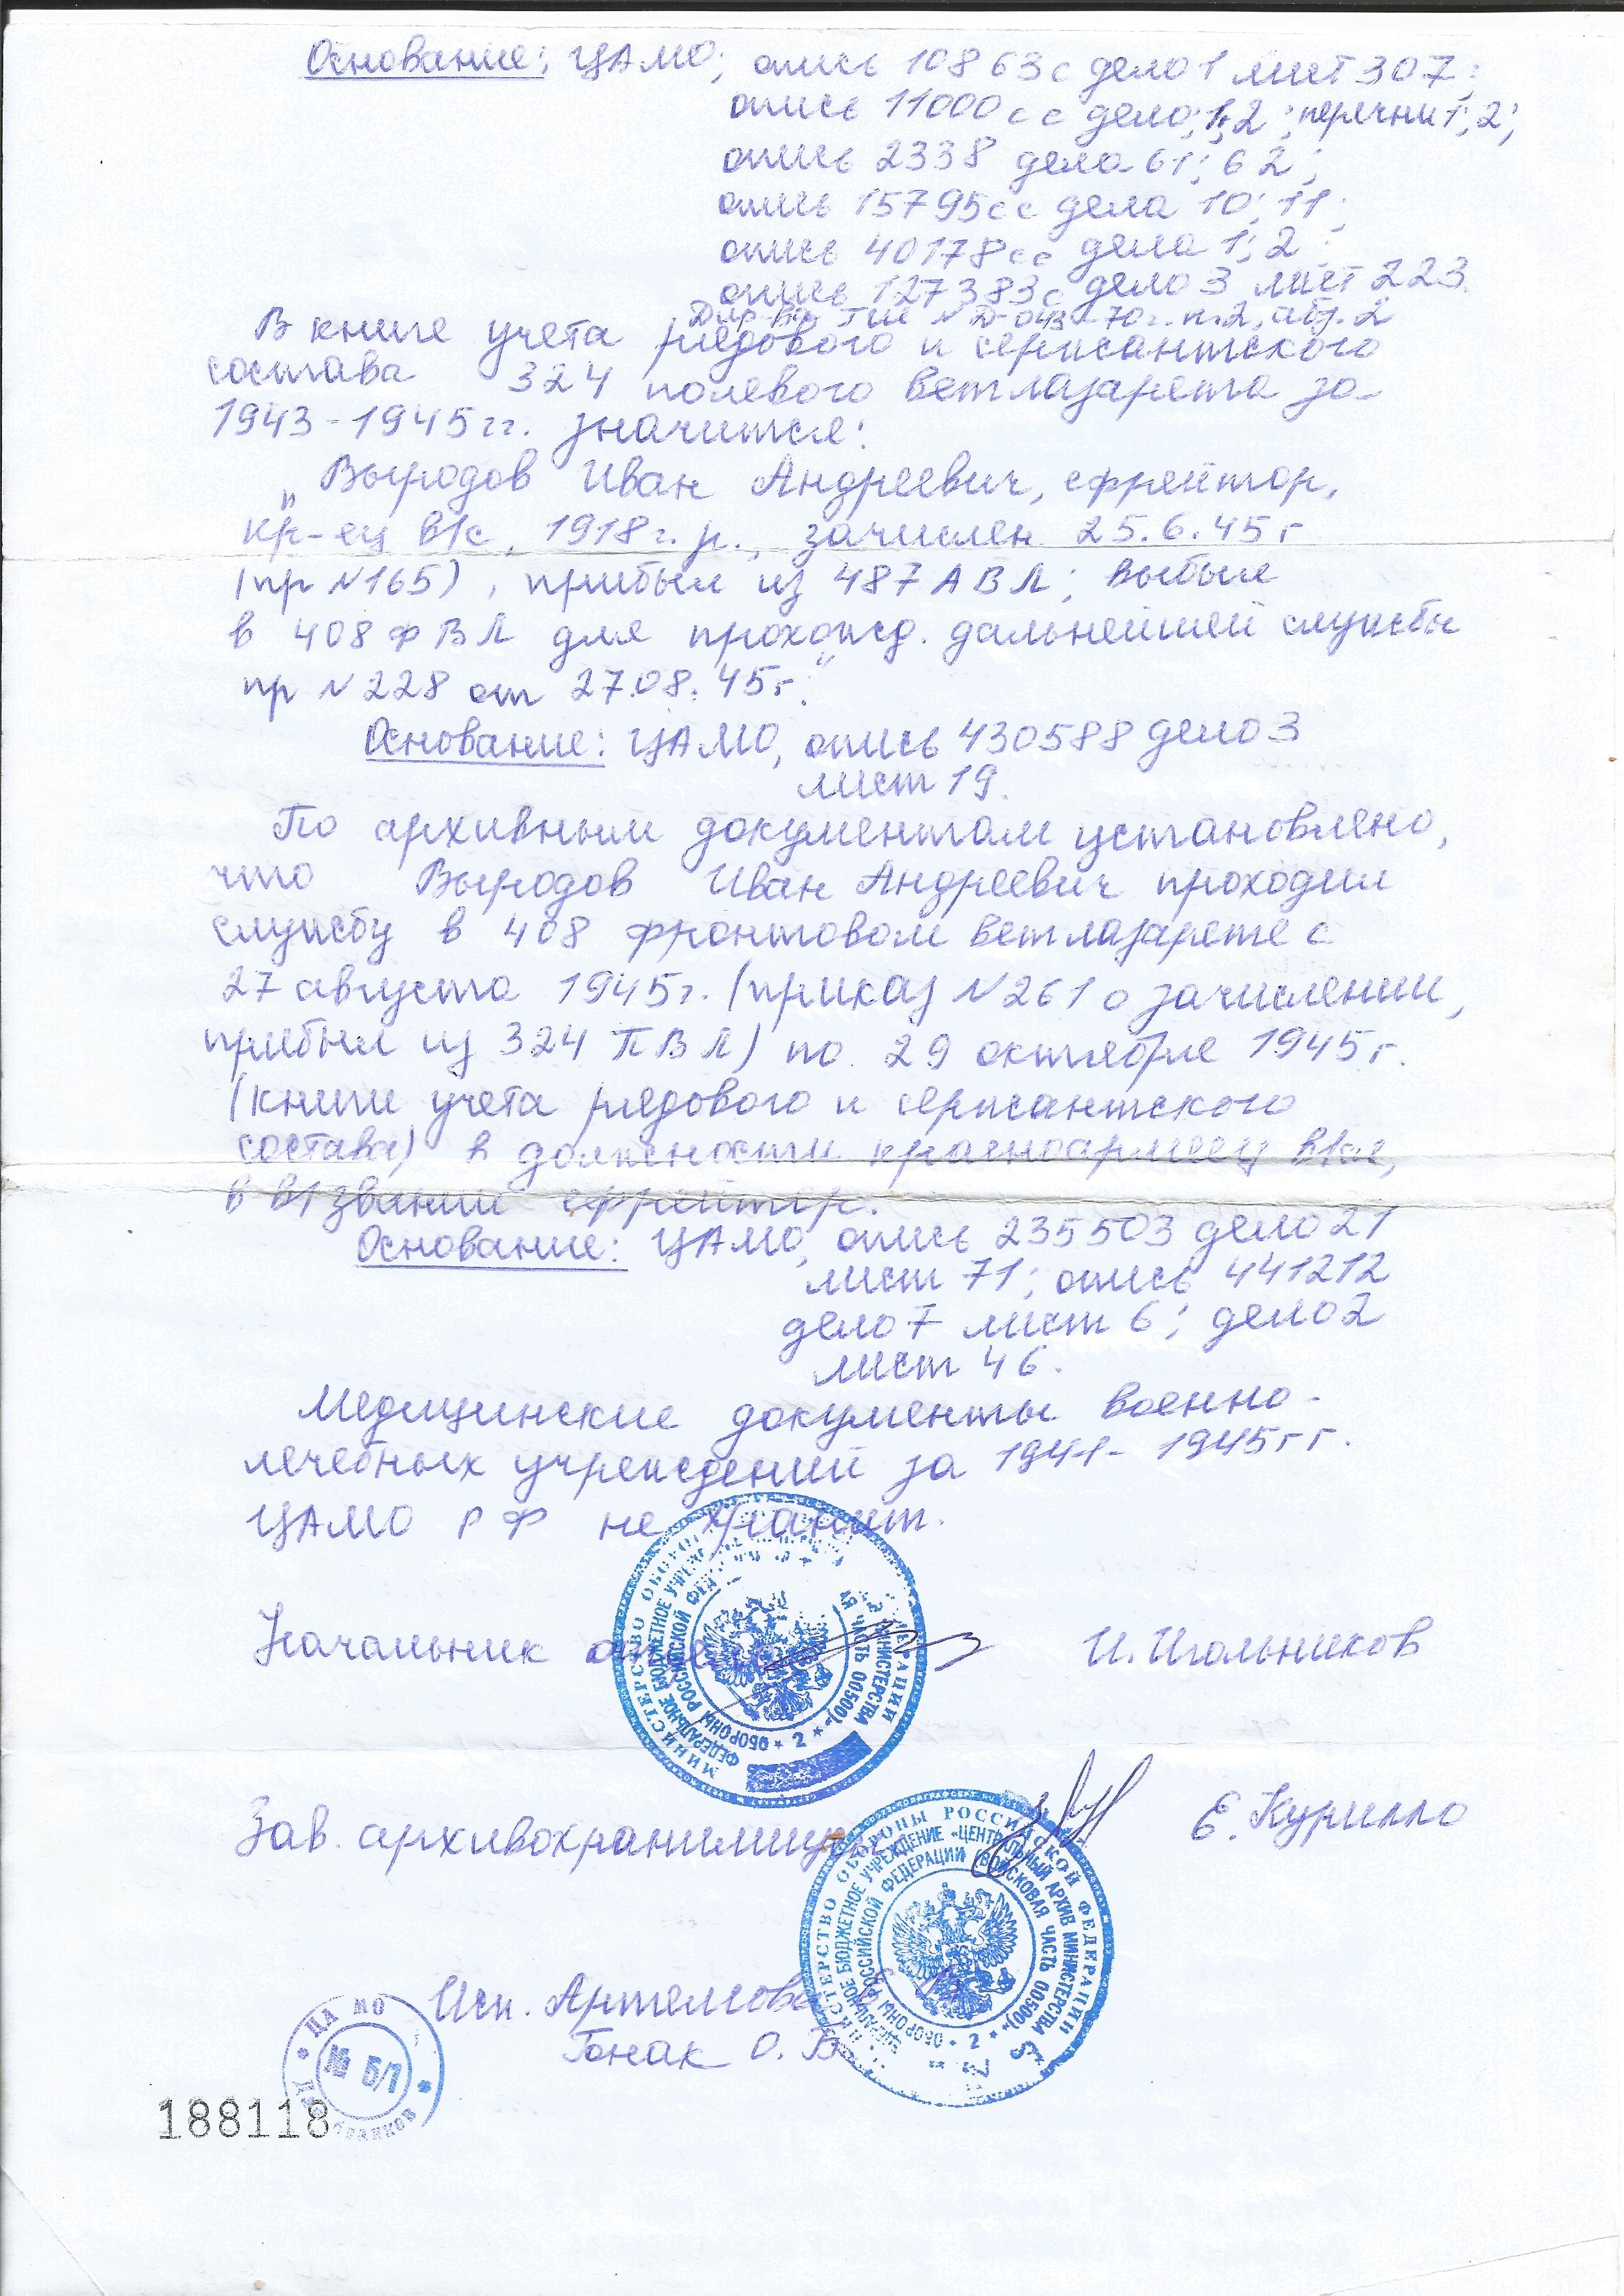 Основание: ЦАМО; опись 10863с дело 1 лист 307;
опись 11000сс дело; 1; 2; перечни 1; 2;
опись 2338 дела 61; 62;
опись 15795сс дела 10; 11;
опись 40178сс дела 1; 2
опись 127383с дело 3 лист 223.
Дир. ГШ № Д-043-70г. п. 2, абз. 2
В книге учета рядового и сержантского
состава 324 полевого ветлазарета за
1943-1945гг. значится:
„Выродов Иван Андреевич, ефрейтор,
кр-ец в/с, 1918г.р., зачислен 25.6.45г
(пр №165), прибыл из 487 АВЛ; выбыл
в 408 ФВЛ для прохожд. дальнейшей службы
пр №228 от 27.08.45г."
Основание: ЦАМО, опись 430588 дело 3
лист 19.
По архивным документам установлено,
что Выродов Иван Андреевич проходил
службу в 408 фронтовом ветлазарете с
27 августа 1945г. (приказ №261 о зачислении,
прибыл из 324 ПВЛ) по 29 октября 1945г.
(книги учета рядового и сержантского
состава) в должности красноармеец
в в/звании ефрейтор.
Основание: ЦАМО, опись 235503 дело 21
лист 71; опись 441212
дело 7 лист 6; дело 2
лист 46.
Медицинские документы военно-
лечебных учреждений за 1941-1945гг.
ЦАМО РФ не хранит.
Начальник отдела И. Игольников
МИНИСТЕРСТВО ОБОРОНЫ
ФЕДЕРАЛЬНОЕ БЮДЖЕТНОЕ УЧРЕЖ
МИНИСТЕРСТВА ОБОРОНЫ РОССИЙСКОЙ ФЕД
ЧАСТЬ 00500)» * 2 *
Зав. архивохранилищем Е. Курилло
МИНИСТЕРСТВО ОБОРОНЫ РОССИЙСКОЙ ФЕДЕРАЦИИ
ФЕДЕРАЛЬНОЕ БЮДЖЕТНОЕ УЧРЕЖДЕНИЕ «ЦЕНТРАЛЬНЫЙ АРХИВ МИНИСТЕРСТВА
ОБОРОНЫ РОССИЙСКОЙ ФЕДЕРАЦИИ (ВОЙСКОВАЯ ЧАСТЬ 00500)» * 2 *
Исп. Артемова
Гонак О. В.
ЦА МО
№ Б/П
188118